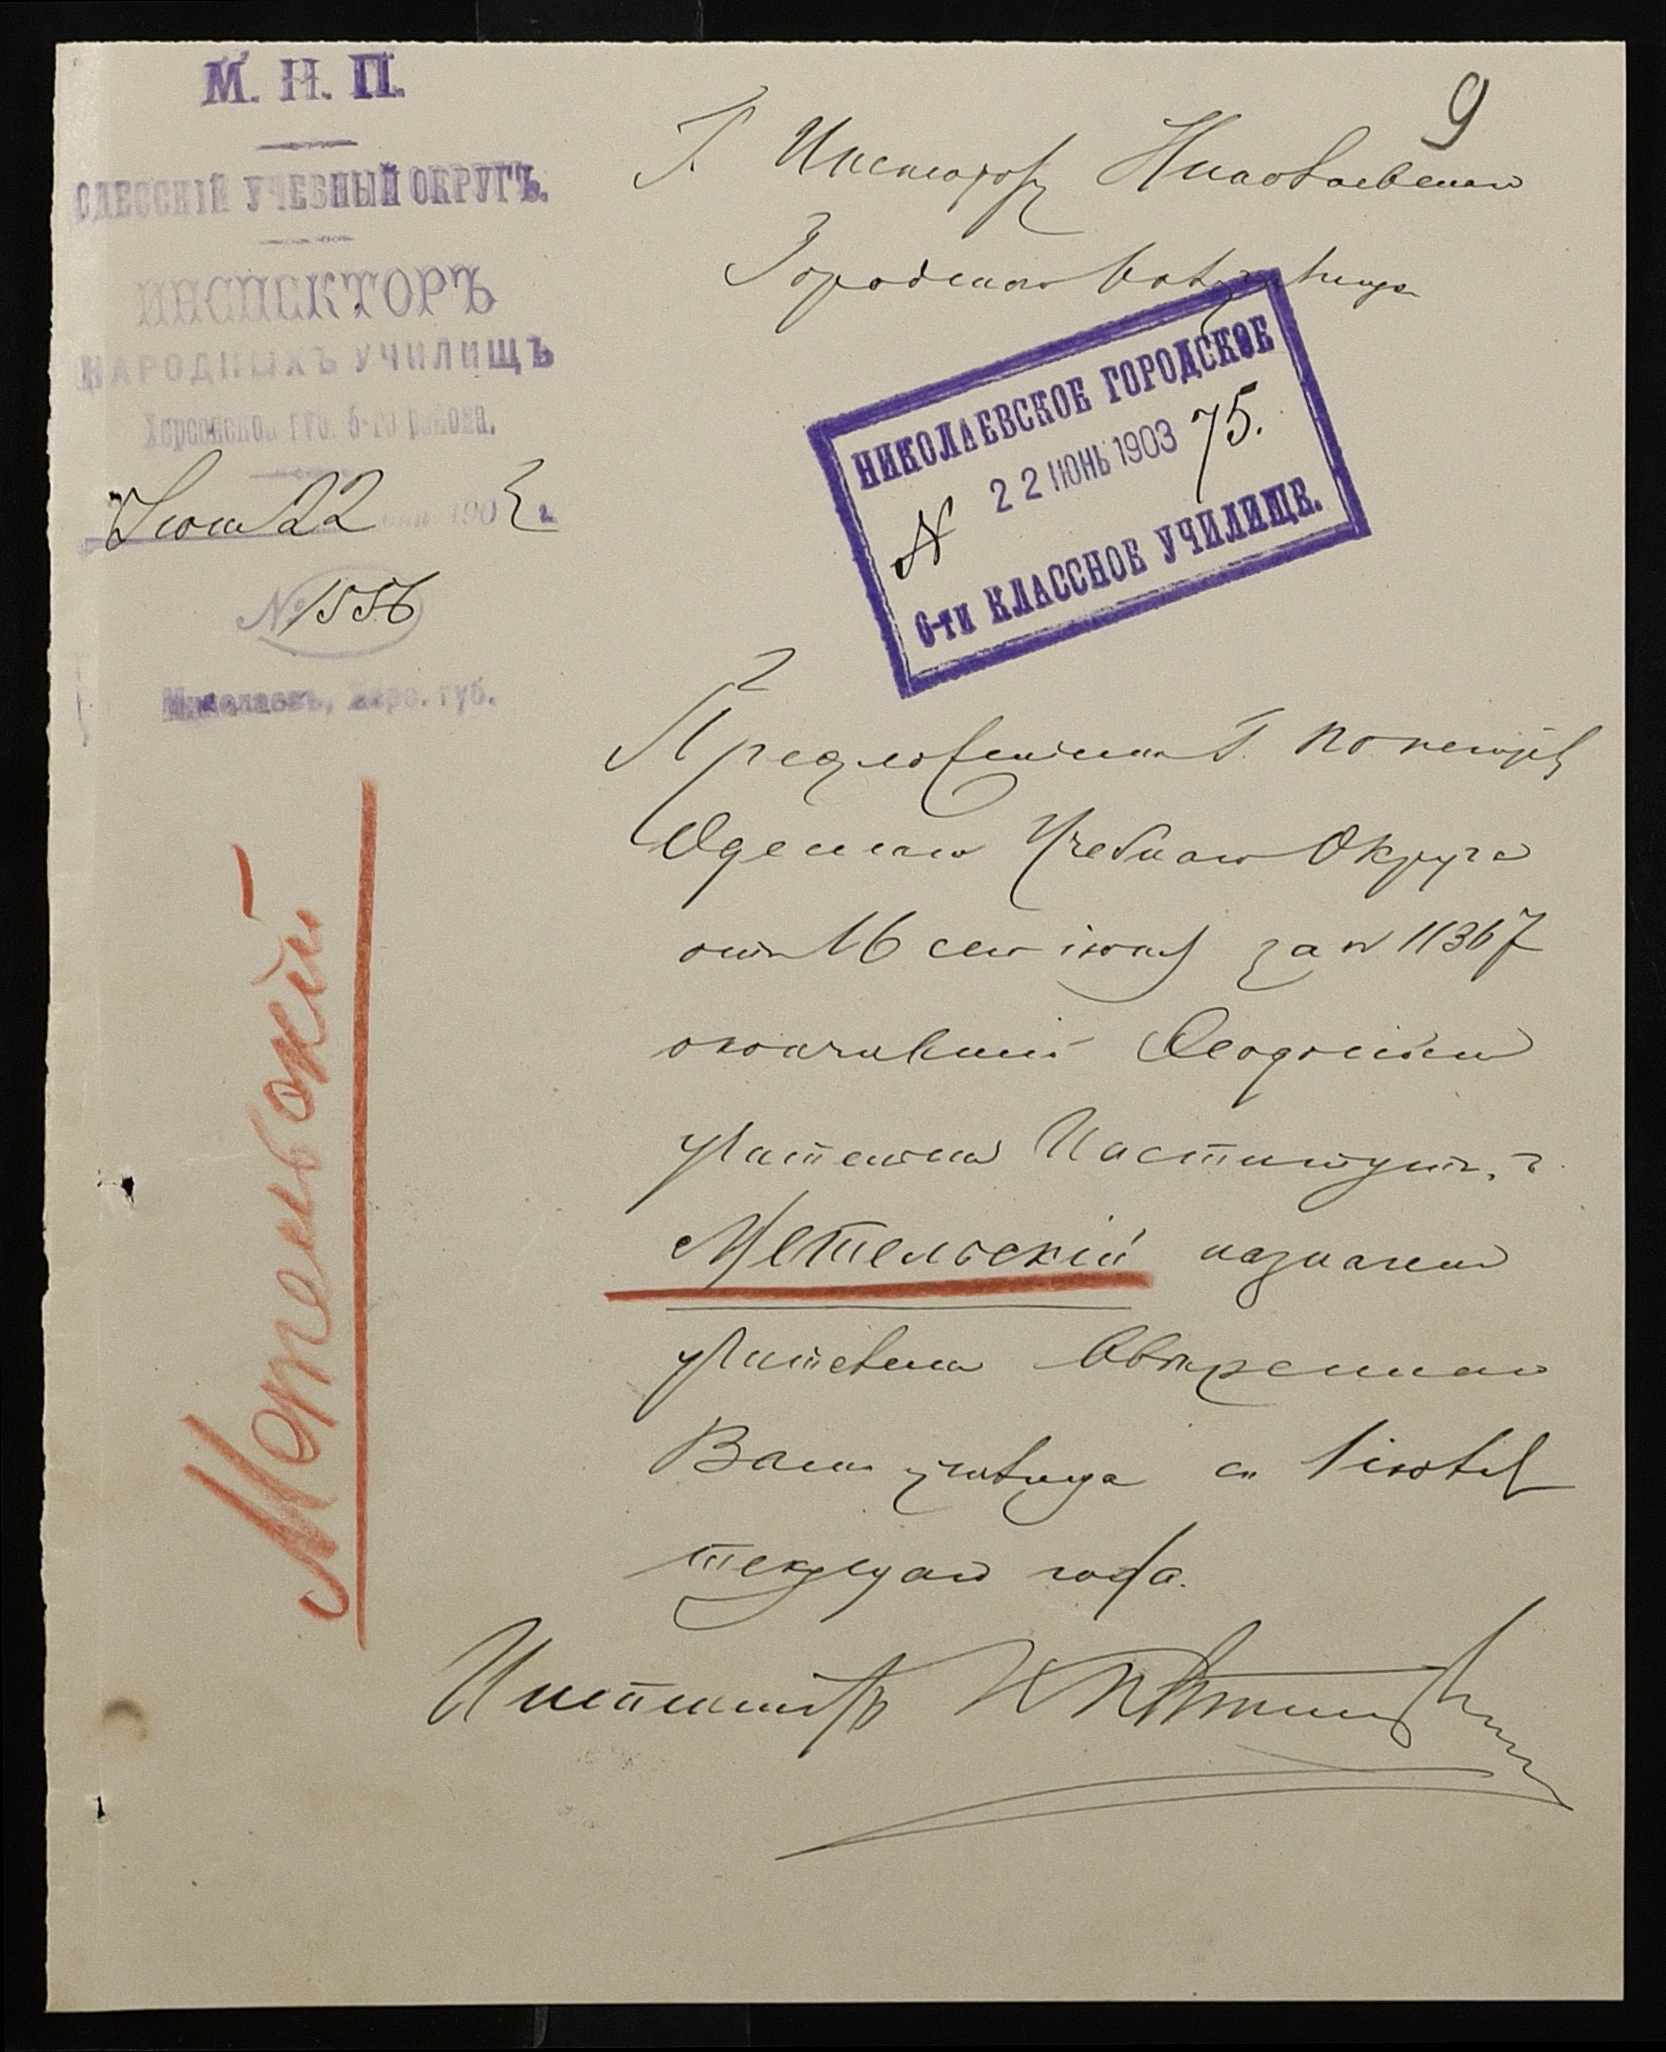 М. Н. П.
ОДЕССКІЙ УЧЕБНЫЙ ОКРУГЪ.
ИНСПЕКТОРЪ
НАРОДНЫХЪ УЧИЛИЩЪ
Херсонской губ. 6-го района.
Іюня 22 дня 1903 г.
№ 1556
Николаевъ, Херс. губ.
9
Г. Инспектору Николаевскаго
Городского училища
НИКОЛАЕВСКОЕ ГОРОДСКОЕ
22 ІЮНЬ 1903
N 75.
6-ти КЛАССНОЕ УЧИЛИЩЕ.
Предложеніемъ Г. Попечителя
Одесскаго Учебнаго Округа
отъ 16 сего іюня за N 11367
окончившій Ѳеодосійскій
учительскій Институтъ, г.
Метельскій назначенъ
учителемъ ввѣреннаго
Вамъ училища съ 1 іюля
текущаго года.
Инспекторъ
Метельскій